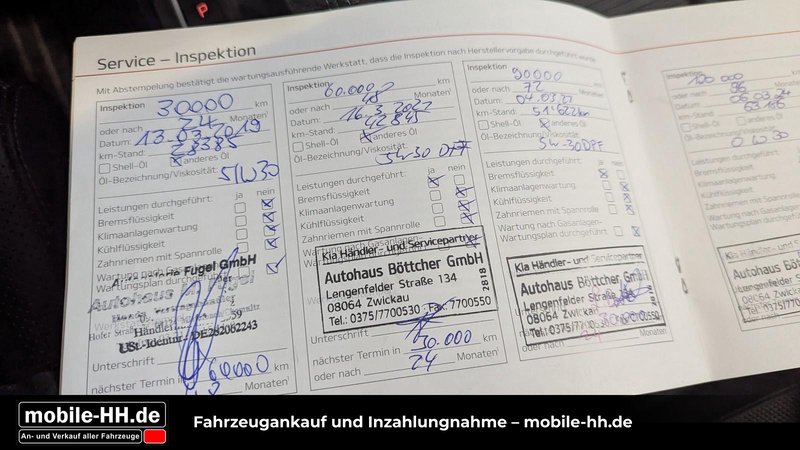 P
Service – Inspektion
Mit Abstempelung bestätigt die wartungsausführende Werkstatt, dass die Inspektion nach Herstellervorgabe durchgeführt wurde
Inspektion 30000 km
oder nach 24 Monaten
Datum: 13.03.2019
km-Stand: 28385
Shell-Öl anderes Öl
Öl-Bezeichnung/Viskosität: 5W30
Leistungen durchgeführt: ja nein
Bremsflüssigkeit
Klimaanlagenwartung
Kühlflüssigkeit
Zahnriemen mit Spannrolle
Wartung
Wartungsplan durchgeführt:
Fugel GmbH
Autohaus Fugel
Händler
59
USt.-Identnr. DE262062243
Unterschrift
nächster Termin in 60000 km
Monaten
Inspektion 60.000 km
oder nach 48 Monaten
Datum: 16.3.2021
km-Stand: 42845
Shell-Öl anderes Öl
Öl-Bezeichnung/Viskosität:
5W-30 DPF
Leistungen durchgeführt: ja nein
Bremsflüssigkeit
Klimaanlagenwartung
Kühlflüssigkeit
Zahnriemen mit Spannrolle
Wartung nach Gasanlagen-
Kia Händler- und Servicepartner
Autohaus Böttcher GmbH
Lengenfelder Straße 134
08064 Zwickau
Tel.: 0375/7700530 Fax: 7700550
2818
Unterschrift
nächster Termin in 30.000 km
oder nach 24 Monaten
Inspektion 90000 km
oder nach 72 Monaten
Datum: 04.03.22
km-Stand: 51'622km
Shell-Öl anderes Öl
Öl-Bezeichnung/Viskosität:
5W-30DPF
Leistungen durchgeführt: ja nein
Bremsflüssigkeit
Klimaanlagenwartung
Kühlflüssigkeit
Zahnriemen mit Spannrolle
Wartung nach Gasanlagen-
Wartungsplan durchgeführt:
Kia Händler- und Servicepartner
Autohaus Böttcher GmbH
Lengenfelder Straße
08064 Zwickau
Tel.: 0375/7700530
2818
nächster Termin in
oder nach 24 Monaten
Inspektion 120 000
oder nach 96
Datum: 06.03.24
km-Stand: 63156
Shell-Öl
Öl-Bezeichnung/Viskosität:
0W30
Leistungen durchgeführt:
Bremsflüssigkeit
Klimaanlagenwartung
Kühlflüssigkeit
Zahnriemen mit Spannrolle
Wartung nach Gasanlagen-
Wartungsplan durchgeführt
Kia Händler- und
Autohaus
Lengenfelder
08064
Tel.: 0375
mobile-HH.de
An- und Verkauf aller Fahrzeuge
Fahrzeugankauf und Inzahlungnahme – mobile-hh.de